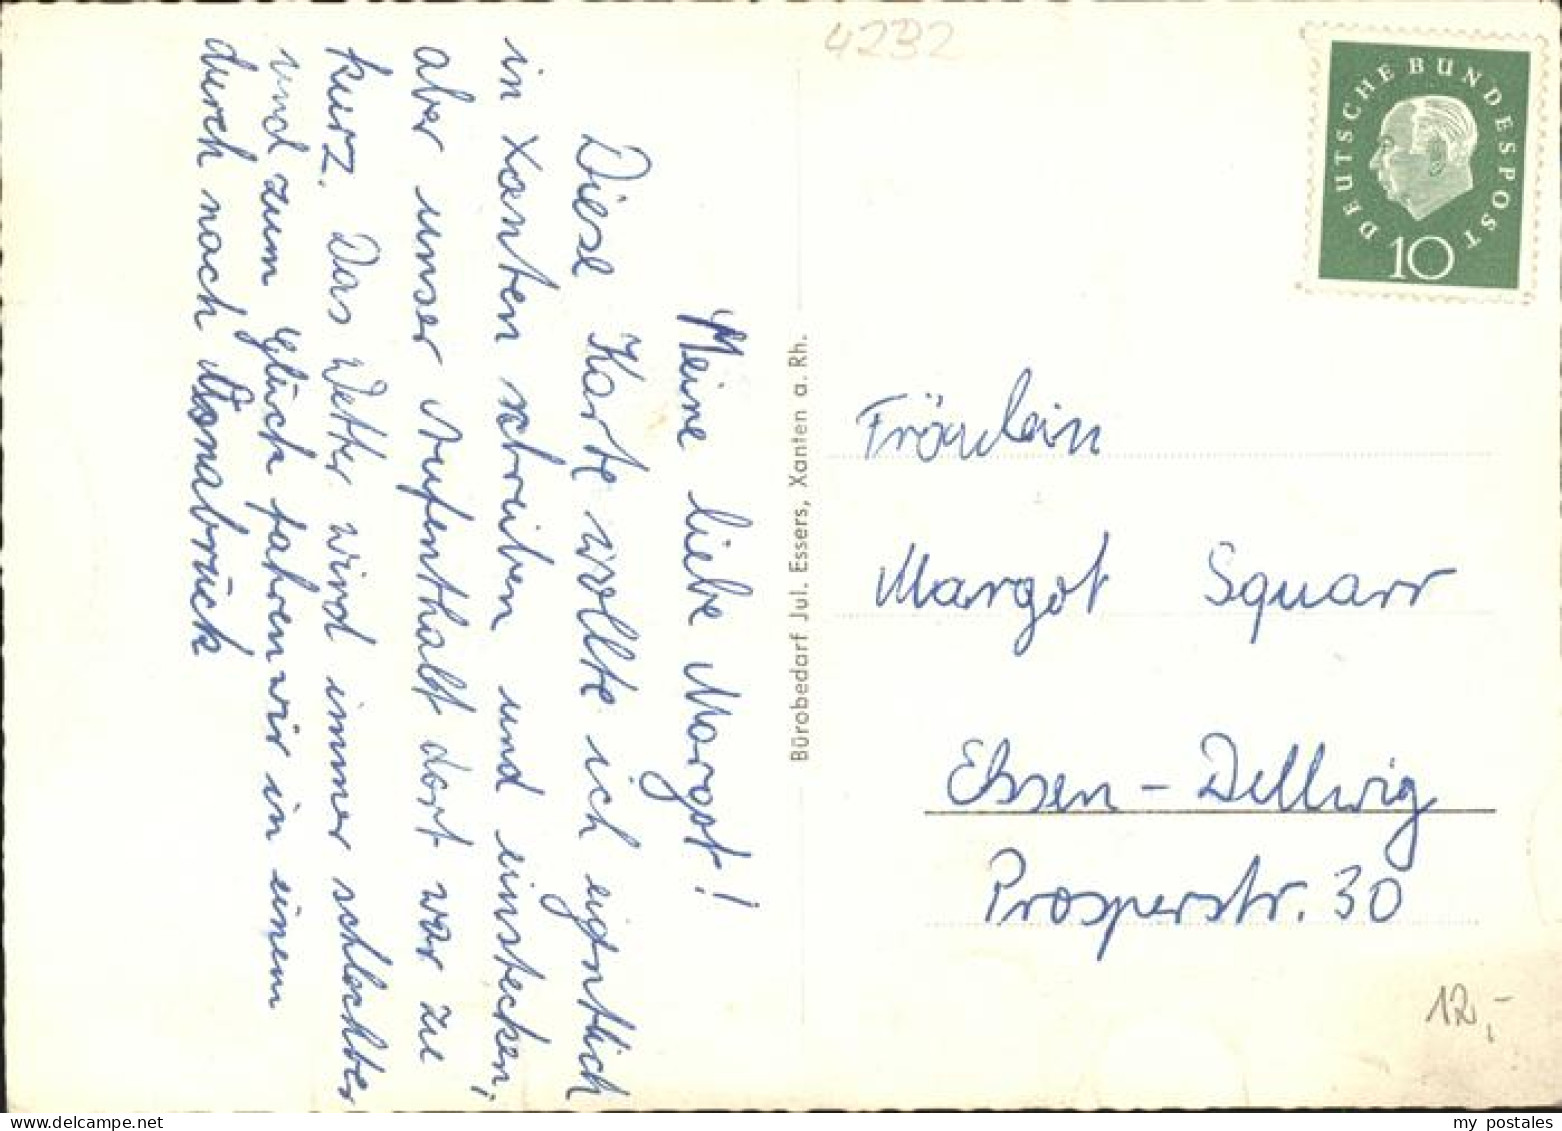 4232
DEUTSCHE BUNDESPOST
10
Meine liebe Margot!
Diese Karte wollte ich eigntlich
in Xanten schreiben und einstecken,
aber unser Aufenthalt dort war zu
kurz. Das Wetter wird immer schlechter
und zum Glück fahren wir in einem
durch nach Osnabrück
Bürobedarf Jul. Essers, Xanten a. Rh.
Fräulein
Margot Squarr
Essen-Dellwig
Prosperstr. 30
12,-
my postales